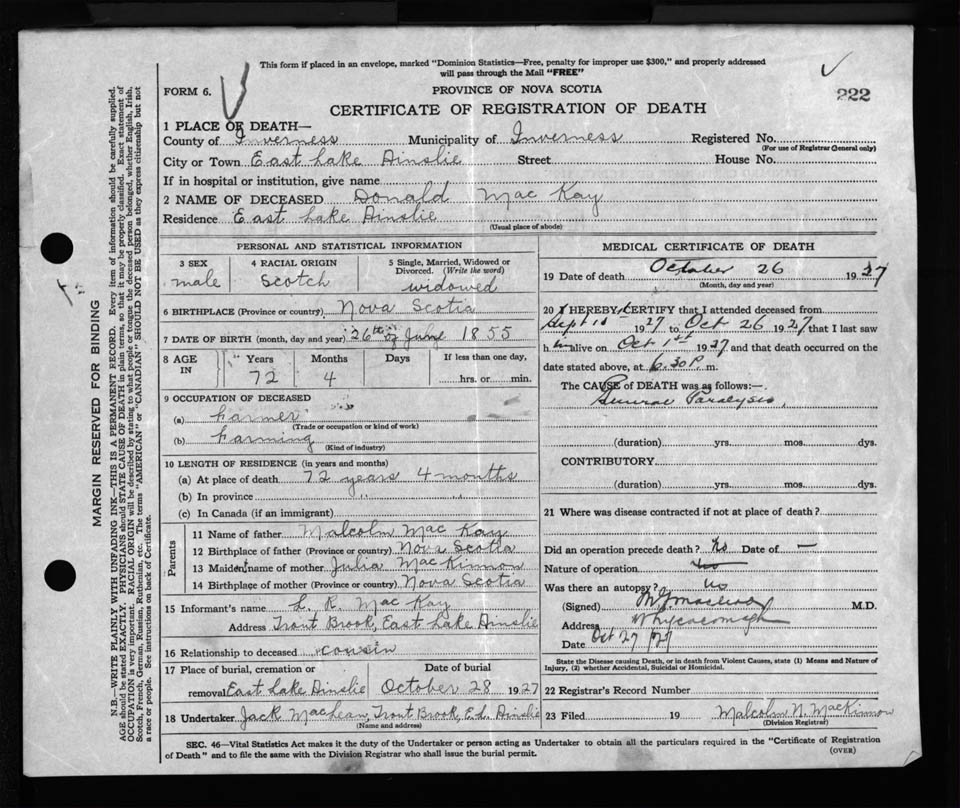 This form if placed in an envelope, marked "Dominion Statistics—Free, penalty for improper use $300," and properly addressed
will pass through the Mail "FREE"
FORM 6.
PROVINCE OF NOVA SCOTIA
222
CERTIFICATE OF REGISTRATION OF DEATH
1 PLACE OF DEATH—
County of Inverness Municipality of Inverness Registered No.
(For use of Registrar General only)
City or Town East Lake Ainslie Street House No.
If in hospital or institution, give name
2 NAME OF DECEASED Donald Mac Kay
Residence East Lake Ainslie
(Usual place of abode)
PERSONAL AND STATISTICAL INFORMATION
3 SEX male
4 RACIAL ORIGIN Scotch
5 Single, Married, Widowed or
Divorced. (Write the word)
widowed
6 BIRTHPLACE (Province or country) Nova Scotia
7 DATE OF BIRTH (month, day and year) 26th of June 1855
8 AGE IN Years Months Days If less than one day,
72 4 hrs. or min.
9 OCCUPATION OF DECEASED
(a) Farmer
(Trade or occupation or kind of work)
(b) Farming
(Kind of industry)
10 LENGTH OF RESIDENCE (in years and months)
(a) At place of death 72 years 4 months
(b) In province " "
(c) In Canada (if an immigrant)
Parents
11 Name of father Malcolm Mac Kay
12 Birthplace of father (Province or country) Nova Scotia
13 Maiden name of mother Julia MacKinnon
14 Birthplace of mother (Province or country) Nova Scotia
15 Informant's name L. R. Mac Kay
Address Trout Brook, East Lake Ainslie
16 Relationship to deceased cousin
17 Place of burial, cremation or Date of burial
removal East Lake Ainslie October 28 1927
18 Undertaker Jack MacLean, Trout Brook, E.L. Ainslie
(Name and address)
MEDICAL CERTIFICATE OF DEATH
19 Date of death October 26 1927
(Month, day and year)
20 I HEREBY CERTIFY that I attended deceased from
Sept 10 1927 to Oct 26 1927 that I last saw
him alive on Oct 1st 1927 and that death occurred on the
date stated above, at 6.30 P. m.
The CAUSE of DEATH was as follows:—
General Paralysis,
(duration) yrs. mos. dys.
CONTRIBUTORY
(duration) yrs. mos. dys.
21 Where was disease contracted if not at place of death?
Did an operation precede death? No Date of —
Nature of operation
Was there an autopsy? No
(Signed) M.D.
Address Whycocomagh
Date Oct 27/27
State the Disease causing Death, or in death from Violent Causes, state (1) Means and Nature of
Injury, (2) whether Accidental, Suicidal or Homicidal.
22 Registrar's Record Number
23 Filed 19 Malcolm N. MacKinnon
(Division Registrar)
SEC. 46—Vital Statistics Act makes it the duty of the Undertaker or person acting as Undertaker to obtain all the particulars required in the "Certificate of Registration
of Death" and to file the same with the Division Registrar who shall issue the burial permit.
(OVER)
MARGIN RESERVED FOR BINDING
N.B.—WRITE PLAINLY WITH UNFADING INK—THIS IS A PERMANENT RECORD. Every item of information should be carefully supplied.
AGE should be stated EXACTLY. PHYSICIANS should STATE CAUSE OF DEATH in plain terms, so that it may be properly classified. Exact statement of
OCCUPATION is very important. RACIAL ORIGIN will be described by stating to what people or tongue the deceased person belonged, whether English, Irish,
Scotch, French, German, Russian, Ruthenian, etc. The terms "AMERICAN" or "CANADIAN" SHOULD NOT BE USED as they express citizenship but not
a race or people. See instructions on back of Certificate.